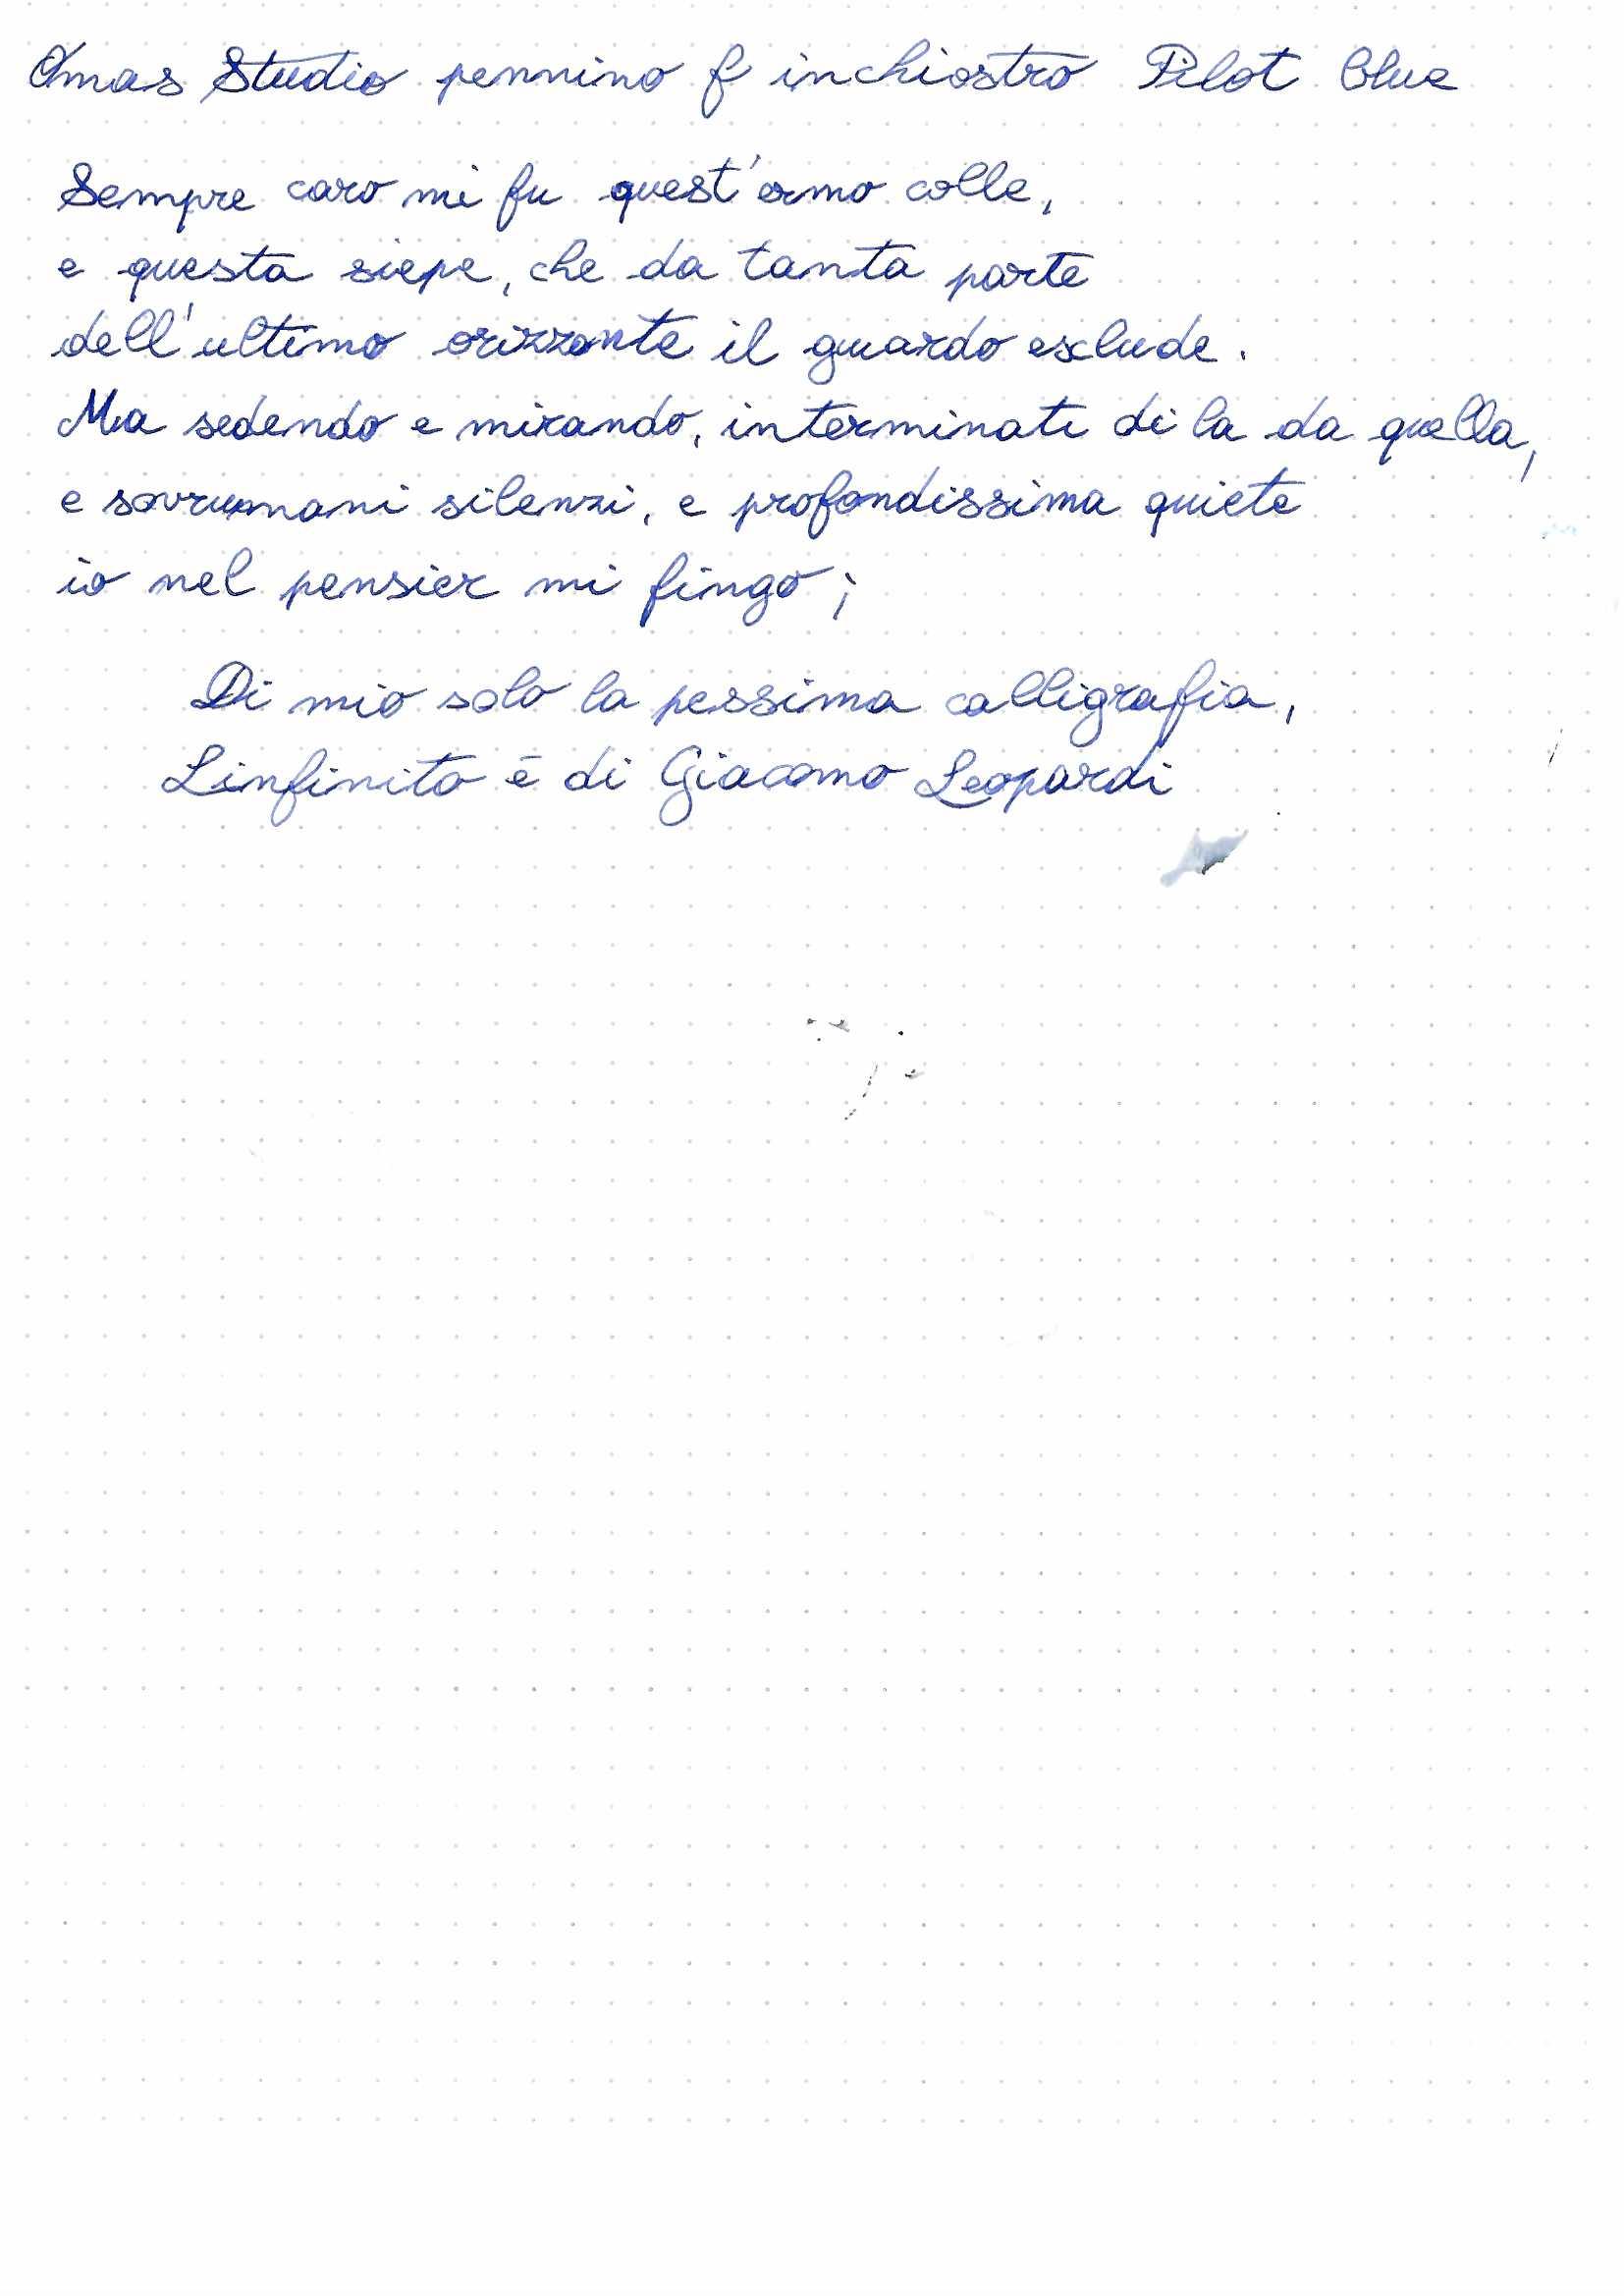 Omas Studio pennino f inchiostro Pilot blue
Sempre caro mi fu quest'ermo colle,
e questa siepe, che da tanta parte
dell'ultimo orizzonte il guardo esclude.
Ma sedendo e mirando, interminati di la da quella,
e sovrumani silenzi, e profondissima quiete
io nel pensier mi fingo;
Di mio solo la pessima calligrafia,
Linfinito è di Giacomo Leopardi